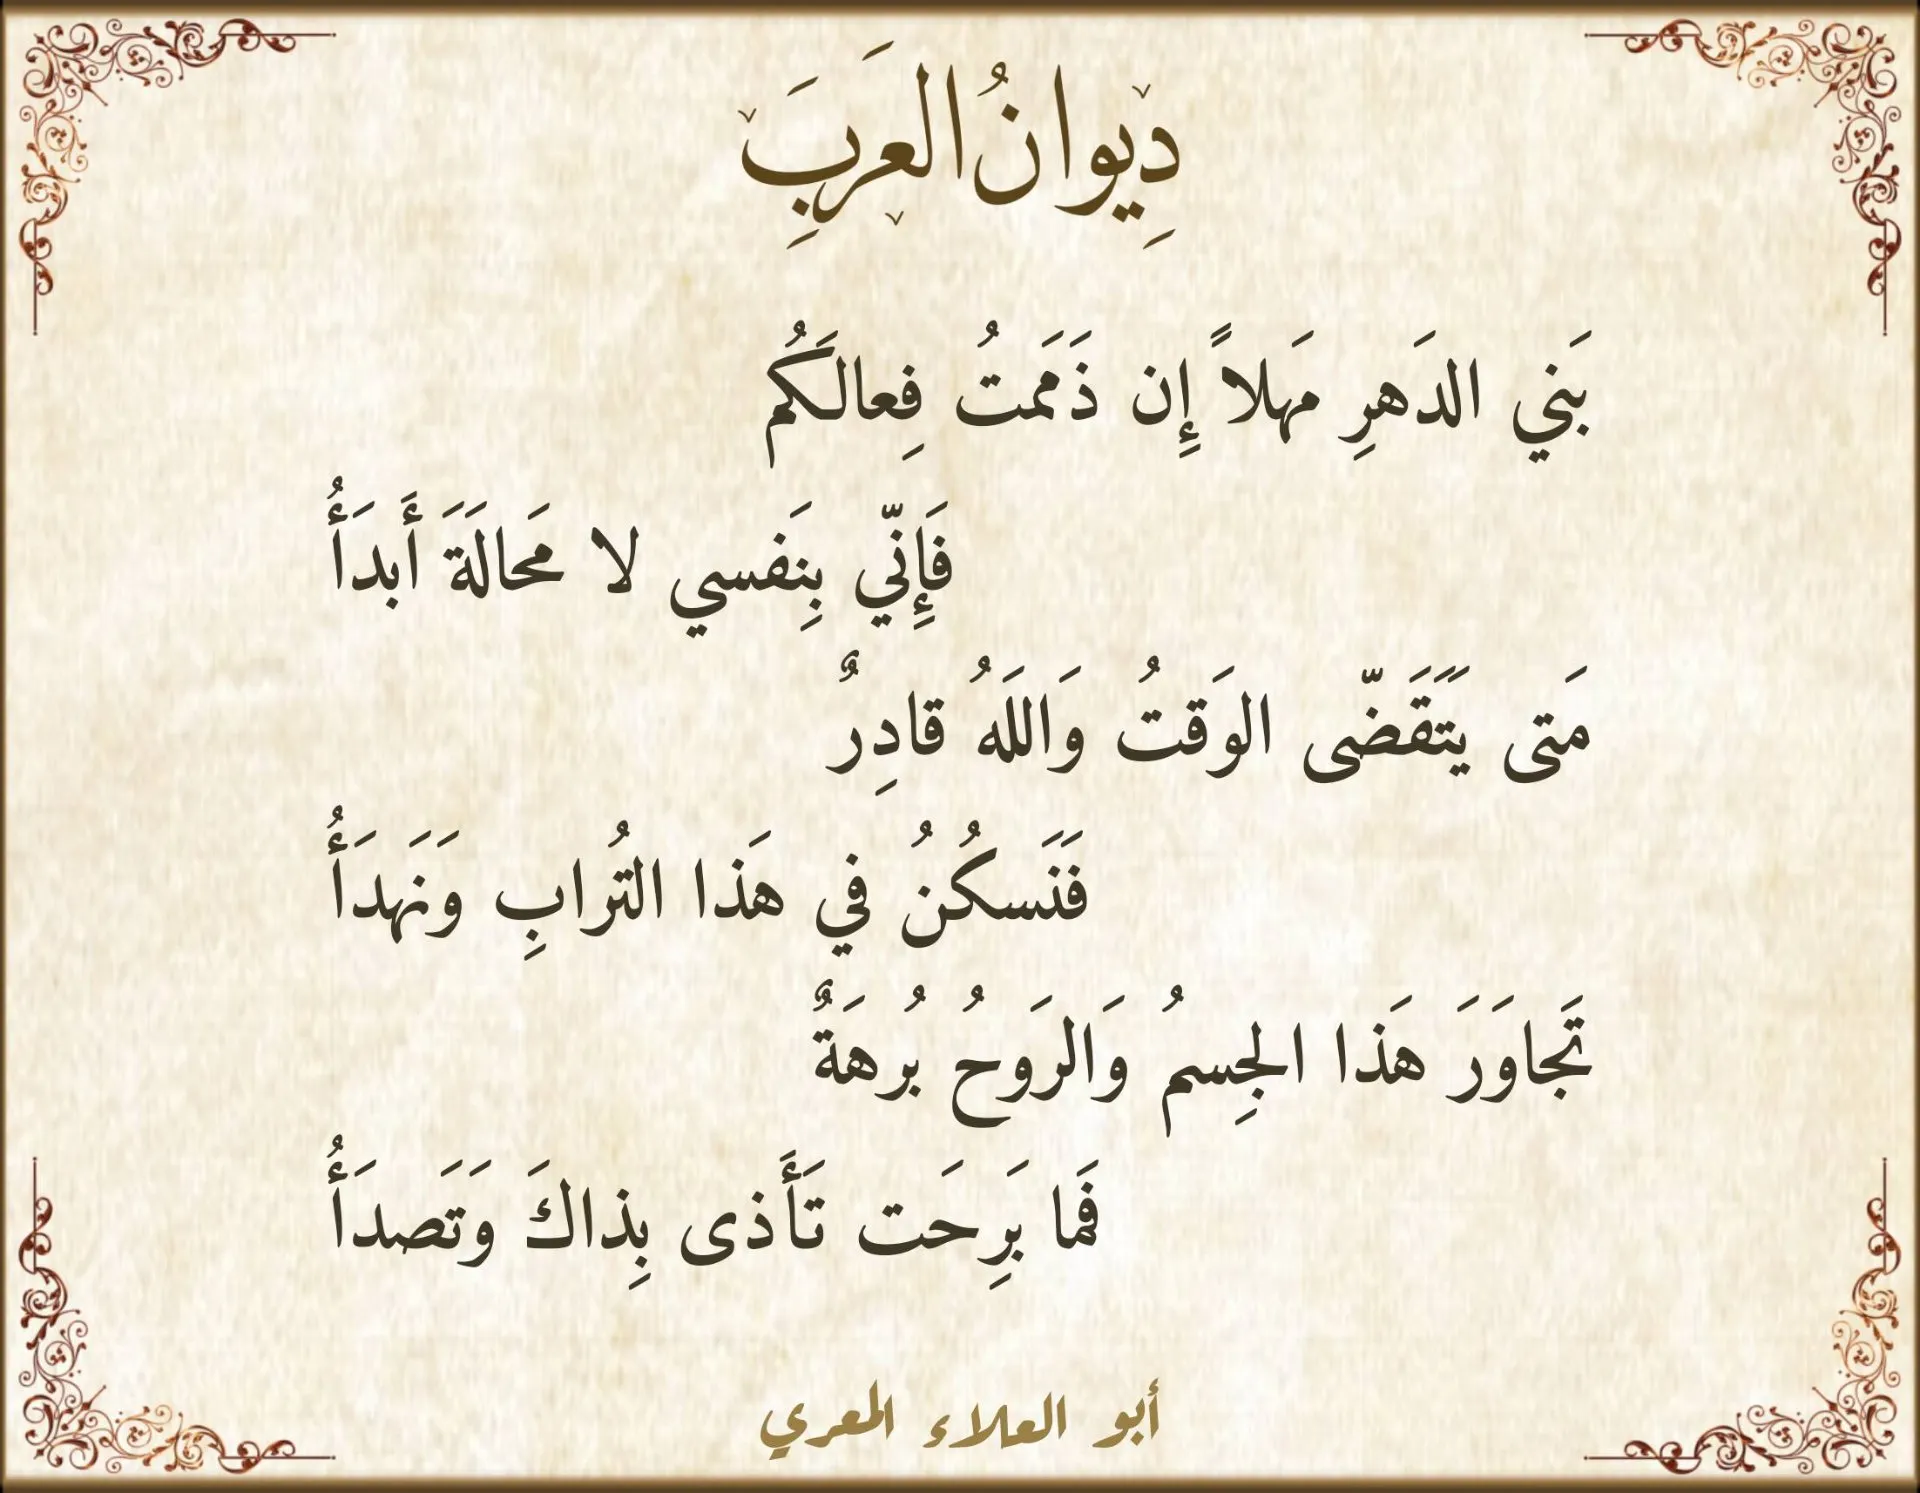 دِيوانُ العَرَبِ
بَني الدَهرِ مَهلاً إِن ذَمَمتُ فِعالَكُم
فَإِنّي بِنَفسي لا مَحالَةَ أَبدَأُ
مَتى يَتَقَضّى الوَقتُ وَاللَهُ قادِرٌ
فَنَسكُنُ في هَذا التُرابِ وَنَهدَأُ
تَجاوَرَ هَذا الجِسمُ وَالرَوحُ بُرهَةٌ
فَما بَرِحَت تَأَذى بِذاكَ وَتَصدَأُ
أبو العلاء المعري